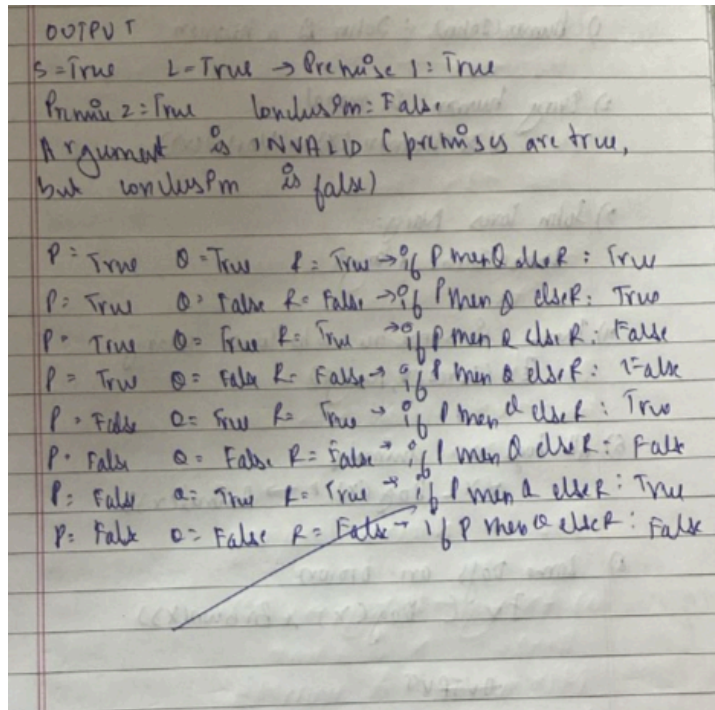 OUTPUT
S = True L = True → Premise 1 : True
Premise 2 : True Conclusion : False
Argument is INVALID (premises are true,
but conclusion is false)
P = True Q = True R = True → if P then Q else R : True
P = True Q = False R = False → if P then Q else R : True
P = True Q = True R = True → if P then Q else R : False
P = True Q = False R = False → if P then Q else R : False
P = False Q = True R = True → if P then Q else R : True
P = False Q = False R = False → if P then Q else R : False
P = False Q = True R = True → if P then Q else R : True
P = False Q = False R = False → if P then Q else R : False